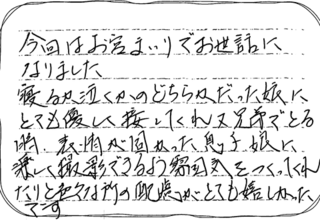 今回はお宮まいりでお世話に
なりました
寝るか泣くかのどちらかだった娘に
とても優しく接してくれ又兄弟でとる
時、表情が固かった息子娘に
楽しく撮影できるよう雰囲気をつくってくれ
たりと色々な所の配慮がとても嬉しかった
です